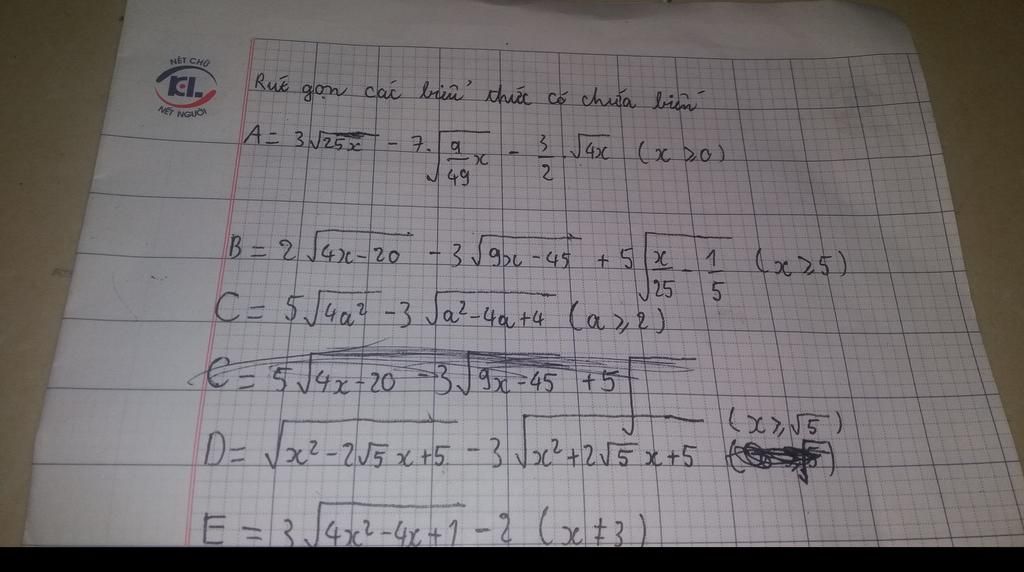 NÉT CHỮ
KL
NẾT NGƯỜI
Rút gọn các biểu thức có chứa biến
A = 3√25x - 7.√(9/49 x) - 3/2 √4x (x ≥ 0)
B = 2 √4x-20 - 3√9x-45 + 5√(x/25 - 1/5) (x ≥ 5)
C = 5√4a² - 3 √a²-4a+4 (a ≥ 2)
C = 5√4x-20 - 3√9x-45 + 5√
D = √x²-2√5x+5 - 3 √x²+2√5x+5 (x ≥ √5)
E = 3√4x²-4x+1 - 2 (x ≠ 3)